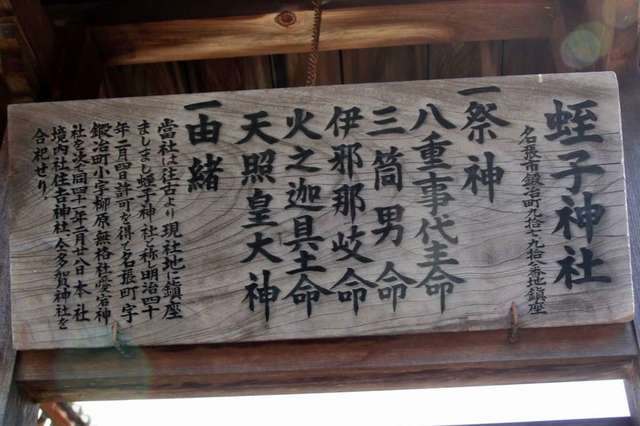 蛭子神社
名張市鍛冶町九拾七、九拾八番地鎮座
一祭神
八重事代主命
三筒男命
伊邪那岐命
火之迦具土命
天照皇大神
一由緒
當社は往古より現社地に鎮座
ましまし蛭子神社と称明治四十
年二月四日許可を得て名張町字
鍛冶町小字柳原無格社愛宕神
社を次同四十一年二月廿八日本社
境内社住吉神社、多賀神社を
合祀せり。